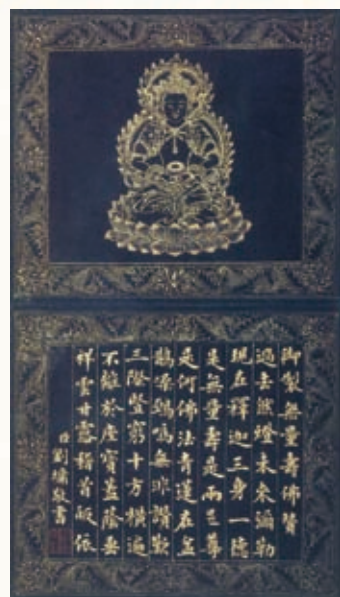 御製無量壽佛贊
過去然燈未來彌勒
現在釋迦三身一德
是無量壽是兩足尊
是何佛法青蓮在盆
鵲噪鴉鳴無非讚歎
三際豎窮十方橫遍
不離於座寶蓋蔭垂
祥雲甘露稽首皈依
臣劉墉敬書